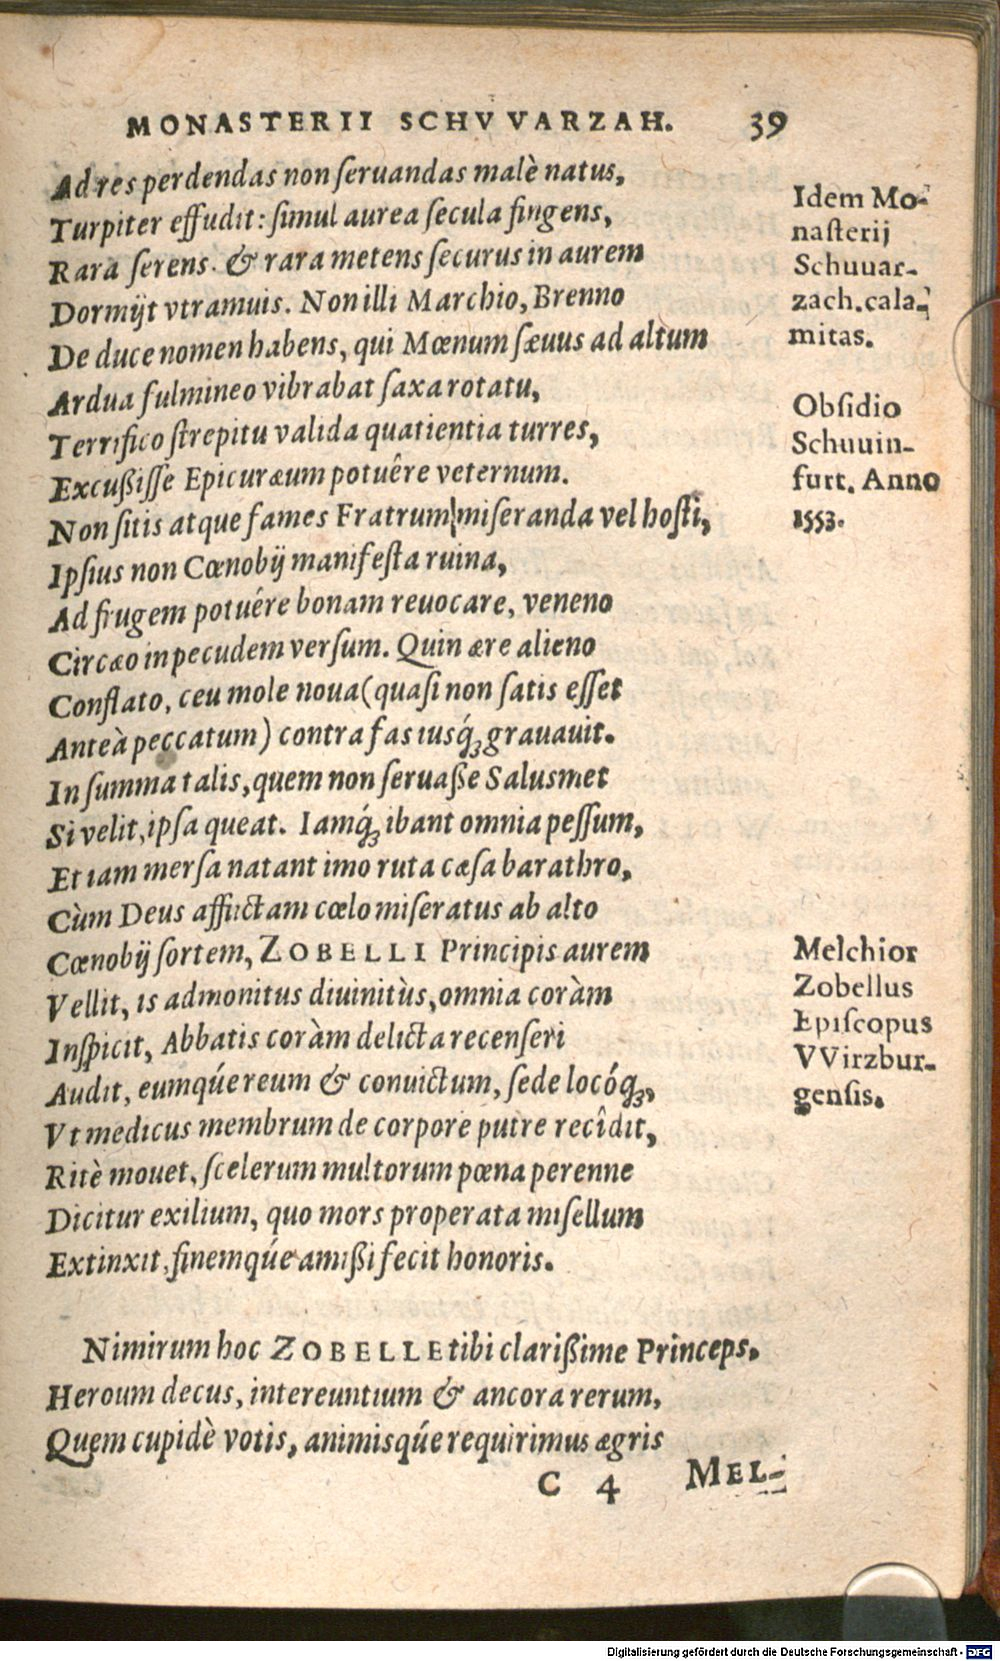 MONASTERII SCHVVARZAH. 39
Ad res perdendas non ſeruandas malè natus,
Turpiter effudit: ſimul aurea ſecula fingens,
Rara ſerens. & rara metens ſecurus in aurem
Dormijt vtramuis. Non illi Marchio, Brenno
De duce nomen habens, qui Mœnum ſæuus ad altum
Ardua fulmineo vibrabat ſaxa rotatu,
Terrifico ſtrepitu valida quatientia turres,
Excußiſſe Epicuræum potuêre veternum.
Non ſitis atque fames Fratrum miſeranda vel hoſti,
Ipſius non Cœnobij manifeſta ruina,
Ad frugem potuêre bonam reuocare, veneno
Circæo in pecudem verſum. Quin ære alieno
Conflato, ceu mole noua (quaſi non ſatis eſſet
Anteà peccatum) contra fas iusq́; grauauit.
In ſumma talis, quem non ſeruaße Salusmet
Si velit, ipſa queat. Iamq́; ibant omnia peſſum,
Et iam merſa natant imo ruta cæſa barathro,
Cùm Deus afflictam cœlo miſeratus ab alto
Cœnobij ſortem, ZOBELLI Principis aurem
Vellit, is admonitus diuinitùs, omnia coràm
Inſpicit, Abbatis coràm delicta recenſeri
Audit, eumq́ue reum & conuictum, ſede locóq́;,
Vt medicus membrum de corpore putre recîdit,
Ritè mouet, ſcelerum multorum pœna perenne
Dicitur exilium, quo mors properata miſellum
Extinxit, finemq́ue amißi fecit honoris.
Nimirum hoc ZOBELLE tibi clarißime Princeps,
Heroum decus, intereuntium & ancora rerum,
Quem cupidè votis, animisq́ue requirimus ægris
C 4 MEL-
Idem Mo-
naſterij
Schuuar-
zach. cala-
mitas.
Obſidio
Schuuin-
furt. Anno
1553.
Melchior
Zobellus
Epiſcopus
VVirzbur-
genſis.
Digitalisierung gefördert durch die Deutsche Forschungsgemeinschaft - DFG